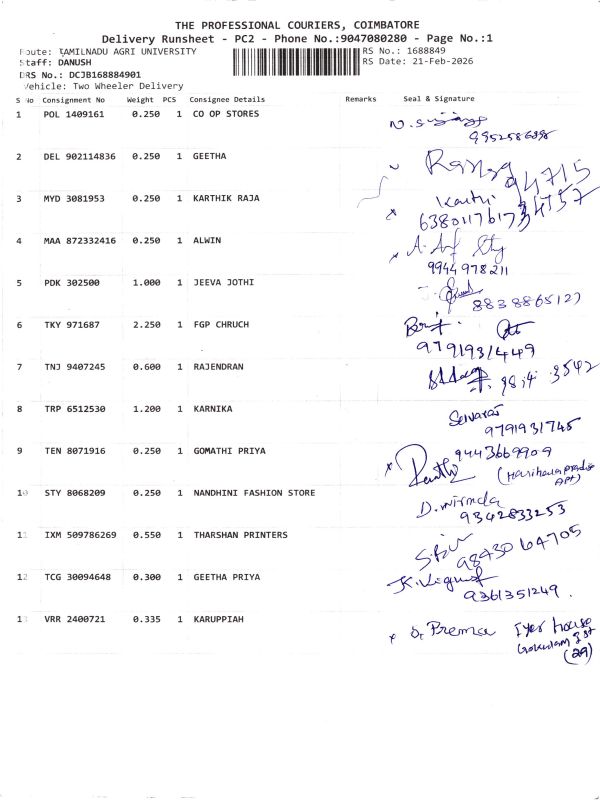 THE PROFESSIONAL COURIERS, COIMBATORE
Delivery Runsheet - PC2 - Phone No.:9047080280 - Page No.:1
Route: TAMILNADU AGRI UNIVERSITY
RS No.: 1688849
Staff: DANUSH
RS Date: 21-Feb-2026
DRS No.: DCJB168884901
Vehicle: Two Wheeler Delivery
S No Consignment No Weight PCS Consignee Details Remarks Seal & Signature
1 POL 1409161 0.250 1 CO OP STORES
2 DEL 902114836 0.250 1 GEETHA
94715
3 MYD 3081953 0.250 1 KARTHIK RAJA
4 MAA 872332416 0.250 1 ALWIN
9944 978211
5 PDK 302500 1.000 1 JEEVA JOTHI
8838865127
6 TKY 971687 2.250 1 FGP CHRUCH
9791931449
7 TNJ 9407245 0.600 1 RAJENDRAN
8 TRP 6512530 1.200 1 KARNIKA
9791931745
9 TEN 8071916 0.250 1 GOMATHI PRIYA 9443669909
10 STY 8068209 0.250 1 NANDHINI FASHION STORE
9342833253
11 IXM 509786269 0.550 1 THARSHAN PRINTERS 98430 64705
12 TCG 30094648 0.300 1 GEETHA PRIYA
9361351249.
13 VRR 2400721 0.335 1 KARUPPIAH Prema Iyer house
(29)